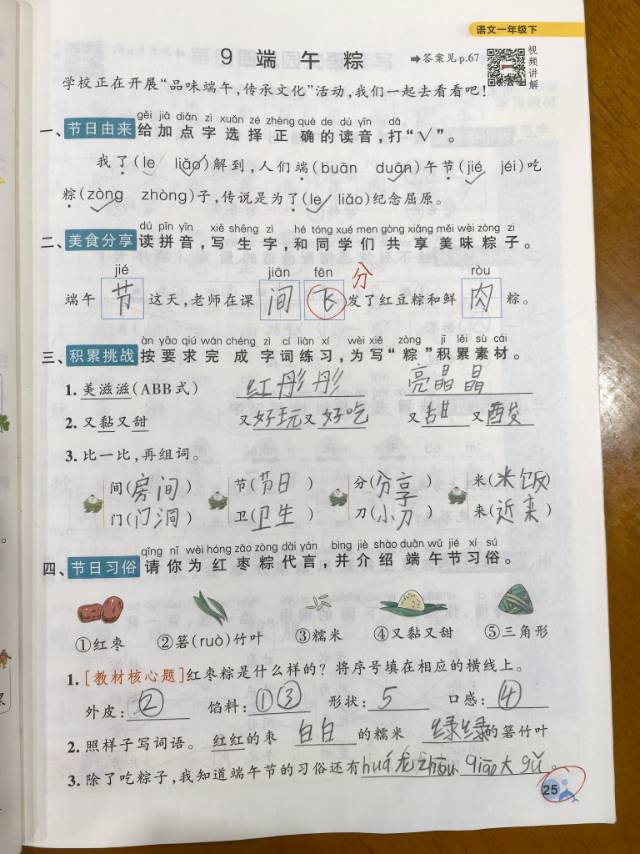 语文一年级下
9 端午粽
➡答案见p.67
视频讲解
学校正在开展“品味端午,传承文化”活动,我们一起去看看吧!
gěi jiā diǎn zì xuǎn zé zhèng què de dú yīn dǎ
一、节日由来 给加点字选择正确的读音,打“√”。
我了(le✓ liǎo✓)解到,人们端(buān duān✓)午节(jié✓ jéi)吃
粽(zòng✓ zhòng)子,传说是为了(le✓ liǎo)纪念屈原。
dú pīn yīn xiě shēng zì hé tóng xué men gòng xiǎng měi wèi zòng zi
二、美食分享 读拼音,写生字,和同学们共享美味粽子。
jié jiān fēn ròu
分
端午节这天,老师在课间飞发了红豆粽和鲜肉粽。
àn yāo qiú wán chéng zì cí liàn xí wèi xiě zòng jī lěi sù cái
三、积累挑战 按要求完成字词练习,为写“粽”积累素材。
1.美滋滋(ABB式) 红彤彤 亮晶晶
2.又黏又甜 又好玩又好吃 又甜又酸
3.比一比,再组词。
间(房间) 节(节日) 分(分享) 米(米饭)
门(门洞) 卫(卫生) 刀(小刀) 来(近来)
qǐng nǐ wèi hóng zǎo zòng dài yán bìng jiè shào duān wǔ jié xí sú
四、节日习俗 请你为红枣粽代言,并介绍端午节习俗。
①红枣 ②箬(ruò)竹叶 ③糯米 ④又黏又甜 ⑤三角形
1.[教材核心题]红枣粽是什么样的?将序号填在相应的横线上。
外皮:② 馅料:①③ 形状:5 口感:④
2.照样子写词语。 红红的枣 白白的糯米 绿绿的箬竹叶
3.除了吃粽子,我知道端午节的习俗还有huá龙zhōu qiāo大gǔ。
25